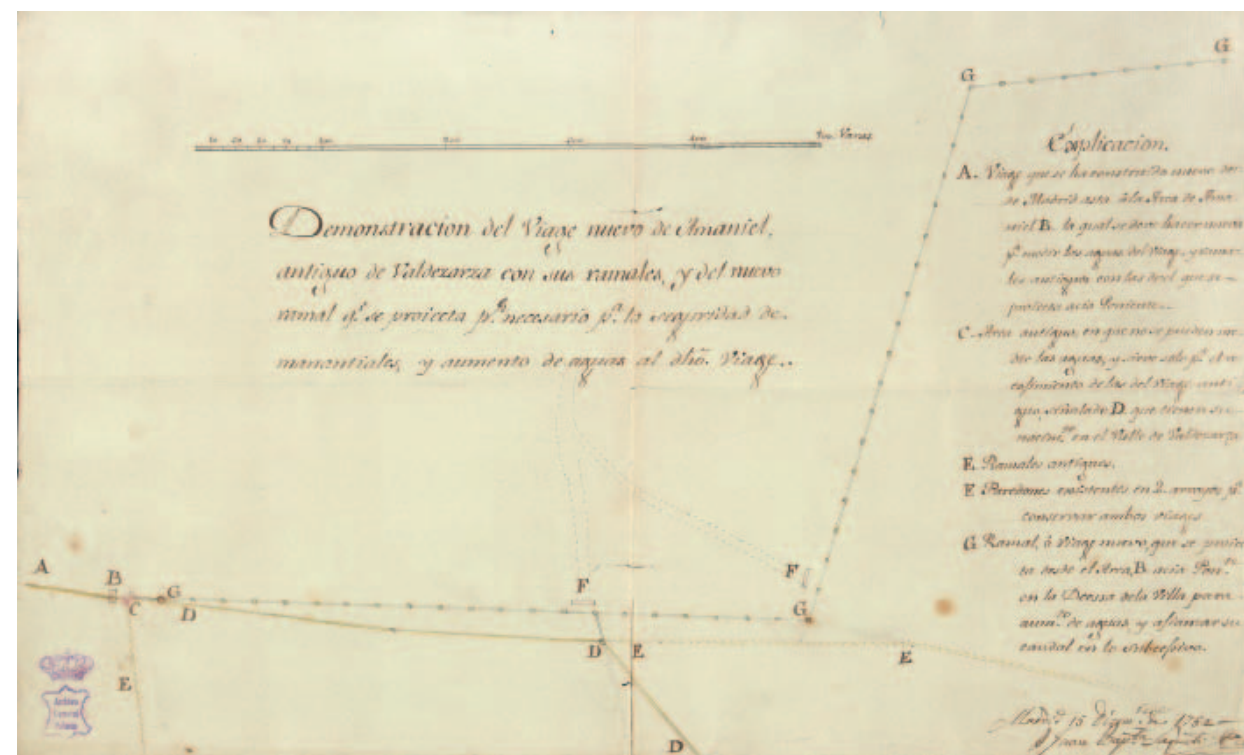 Varas
Demonstracion del Viage nuevo de Amaniel,
antiguo de Valdezarza con sus ramales, y del nuevo
ramal q.e se proiecta p.r necesario p.a la seguridad de
manantiales, y aumento de aguas al dho. Viage.
G
G
Explicacion.
A. Viage que se ha construido nuevo des-
de Madrid asta â la Arca de Ama-
niel B. la qual se deve hacer nueva
p.a medir las aguas del Viage, y rama-
les antiguos con las de el que se
proiecta acia Poniente.
C. Arca antigua, en que no se pueden me-
dir las aguas, y sirve solo p.a el re
cosimiento de las del Viage anti-
guo, señalado D. que tienen su
nacim.to en el Valle de Valdezarza
E. Ramales antiguos.
F. Paredones existentes en 2. arroyos p.a
conservar ambos viages
G. Ramal, ô Viage nuevo, que se proiec
ta desde el Arca, B. acia Pon.te
en la Deessa de la Villa para
aum.to de aguas, y afianzar su
caudal en lo subcesivo.
A
B
C
G
D
F
F
G
D
E
E
E
D
Archivo
General
Palacio
Madrid 15 de 1782
Juan Bapt.a